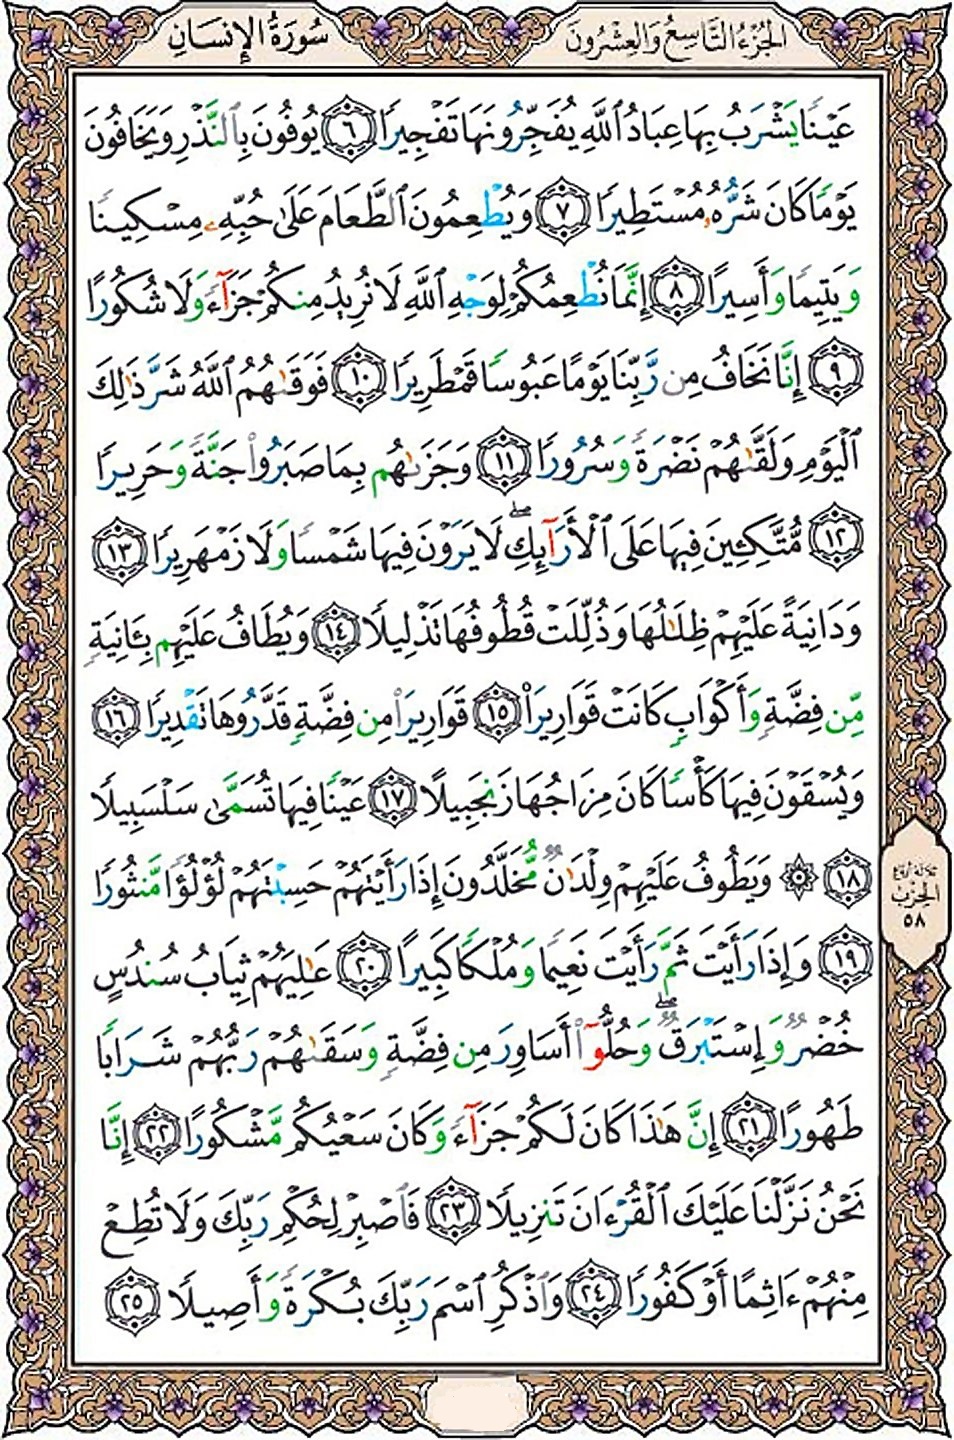 الجُزْءُ التَّاسِعُ وَالعِشْرُونَ
سُورَةُ الإِنسَانِ
عَيْنًا يَشْرَبُ بِهَا عِبَادُ ٱللَّهِ يُفَجِّرُونَهَا تَفْجِيرًا ٦ يُوفُونَ بِٱلنَّذْرِ وَيَخَافُونَ
يَوْمًا كَانَ شَرُّهُۥ مُسْتَطِيرًا ٧ وَيُطْعِمُونَ ٱلطَّعَامَ عَلَىٰ حُبِّهِۦ مِسْكِينًا
وَيَتِيمًا وَأَسِيرًا ٨ إِنَّمَا نُطْعِمُكُمْ لِوَجْهِ ٱللَّهِ لَا نُرِيدُ مِنكُمْ جَزَآءً وَلَا شُكُورًا
٩ إِنَّا نَخَافُ مِن رَّبِّنَا يَوْمًا عَبُوسًا قَمْطَرِيرًا ١٠ فَوَقَىٰهُمُ ٱللَّهُ شَرَّ ذَٰلِكَ
ٱلْيَوْمِ وَلَقَّىٰهُمْ نَضْرَةً وَسُرُورًا ١١ وَجَزَىٰهُم بِمَا صَبَرُوا۟ جَنَّةً وَحَرِيرًا
١٢ مُّتَّكِـِٔينَ فِيهَا عَلَى ٱلْأَرَآئِكِ ۖ لَا يَرَوْنَ فِيهَا شَمْسًا وَلَا زَمْهَرِيرًا ١٣
وَدَانِيَةً عَلَيْهِمْ ظِلَـٰلُهَا وَذُلِّلَتْ قُطُوفُهَا تَذْلِيلًا ١٤ وَيُطَافُ عَلَيْهِم بِـَٔانِيَةٍ
مِّن فِضَّةٍ وَأَكْوَابٍ كَانَتْ قَوَارِيرَا۠ ١٥ قَوَارِيرَا۟ مِن فِضَّةٍ قَدَّرُوهَا تَقْدِيرًا ١٦
وَيُسْقَوْنَ فِيهَا كَأْسًا كَانَ مِزَاجُهَا زَنجَبِيلًا ١٧ عَيْنًا فِيهَا تُسَمَّىٰ سَلْسَبِيلًا
١٨ ۞ وَيَطُوفُ عَلَيْهِمْ وِلْدَٰنٌ مُّخَلَّدُونَ إِذَا رَأَيْتَهُمْ حَسِبْتَهُمْ لُؤْلُؤًا مَّنثُورًا
ثلاثة أرباع
الحِزْب
٥٨
١٩ وَإِذَا رَأَيْتَ ثَمَّ رَأَيْتَ نَعِيمًا وَمُلْكًا كَبِيرًا ٢٠ عَـٰلِيَهُمْ ثِيَابُ سُندُسٍ
خُضْرٌ وَإِسْتَبْرَقٌ ۖ وَحُلُّوٓا۟ أَسَاوِرَ مِن فِضَّةٍ وَسَقَىٰهُمْ رَبُّهُمْ شَرَابًا
طَهُورًا ٢١ إِنَّ هَـٰذَا كَانَ لَكُمْ جَزَآءً وَكَانَ سَعْيُكُم مَّشْكُورًا ٢٢ إِنَّا
نَحْنُ نَزَّلْنَا عَلَيْكَ ٱلْقُرْءَانَ تَنزِيلًا ٢٣ فَٱصْبِرْ لِحُكْمِ رَبِّكَ وَلَا تُطِعْ
مِنْهُمْ ءَاثِمًا أَوْ كَفُورًا ٢٤ وَٱذْكُرِ ٱسْمَ رَبِّكَ بُكْرَةً وَأَصِيلًا ٢٥